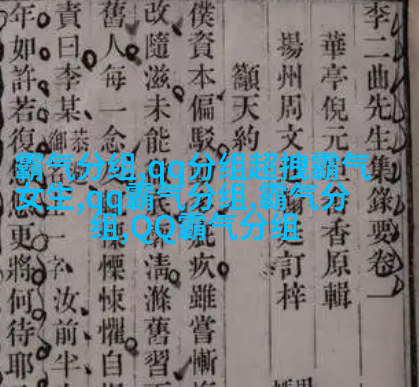 李二曲先生集錄要卷一
華亭倪元坦畬香原輯
揚州周文
訂梓
籲天約
僕資本偏駁
疚雖嘗慚
改隨滋未能
清滌舊習
舊人每一念
慄悚懼自
責曰李某
字汝前半
年如許若復
更將何待耶
霸气分组,qq分组超拽霸气
女生,qq霸气分组,霸气分
组,QQ霸气分组